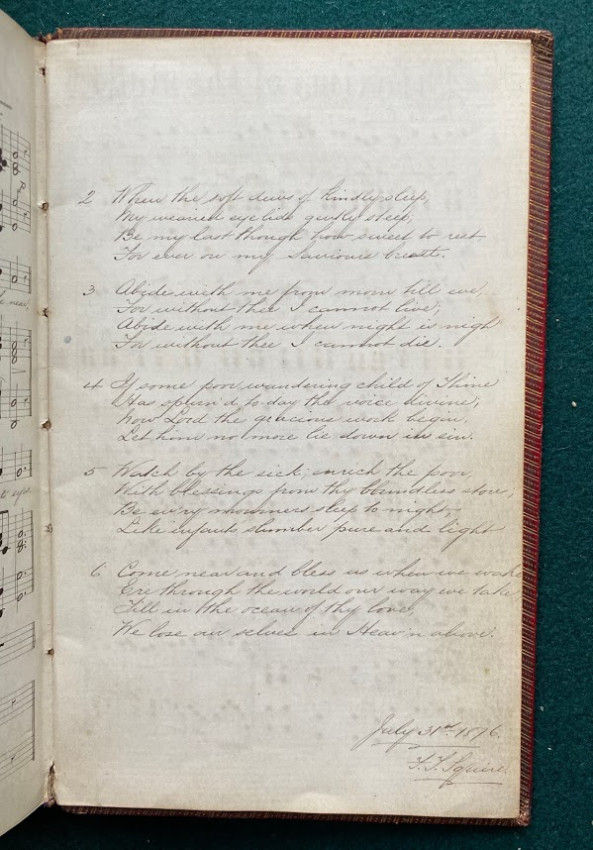 2 When the soft dews of kindly sleep,
My wearied eyelids gently steep,
Be my last though how sweet to rest
For ever on my Saviours breast.
3 Abide with me from morn till eve,
For without thee I cannot live,
Abide with me when night is nigh
For without thee I cannot die.
4 If some poor wandering child of Thine
Has spurn'd to day the voice divine,
Now Lord the gracious work begin,
Let him no more lie down in sin.
5 Watch by the sick; enrich the poor,
With blessings from thy boundless store,
Be ev'ry mourners sleep to night,
Like infants slumber pure and light
6 Come near and bless us when we wake,
Ere through the world our way we take
Till in the ocean of thy love,
We lose our selves in Heav'n above.
July 31st 1876.
Squire.